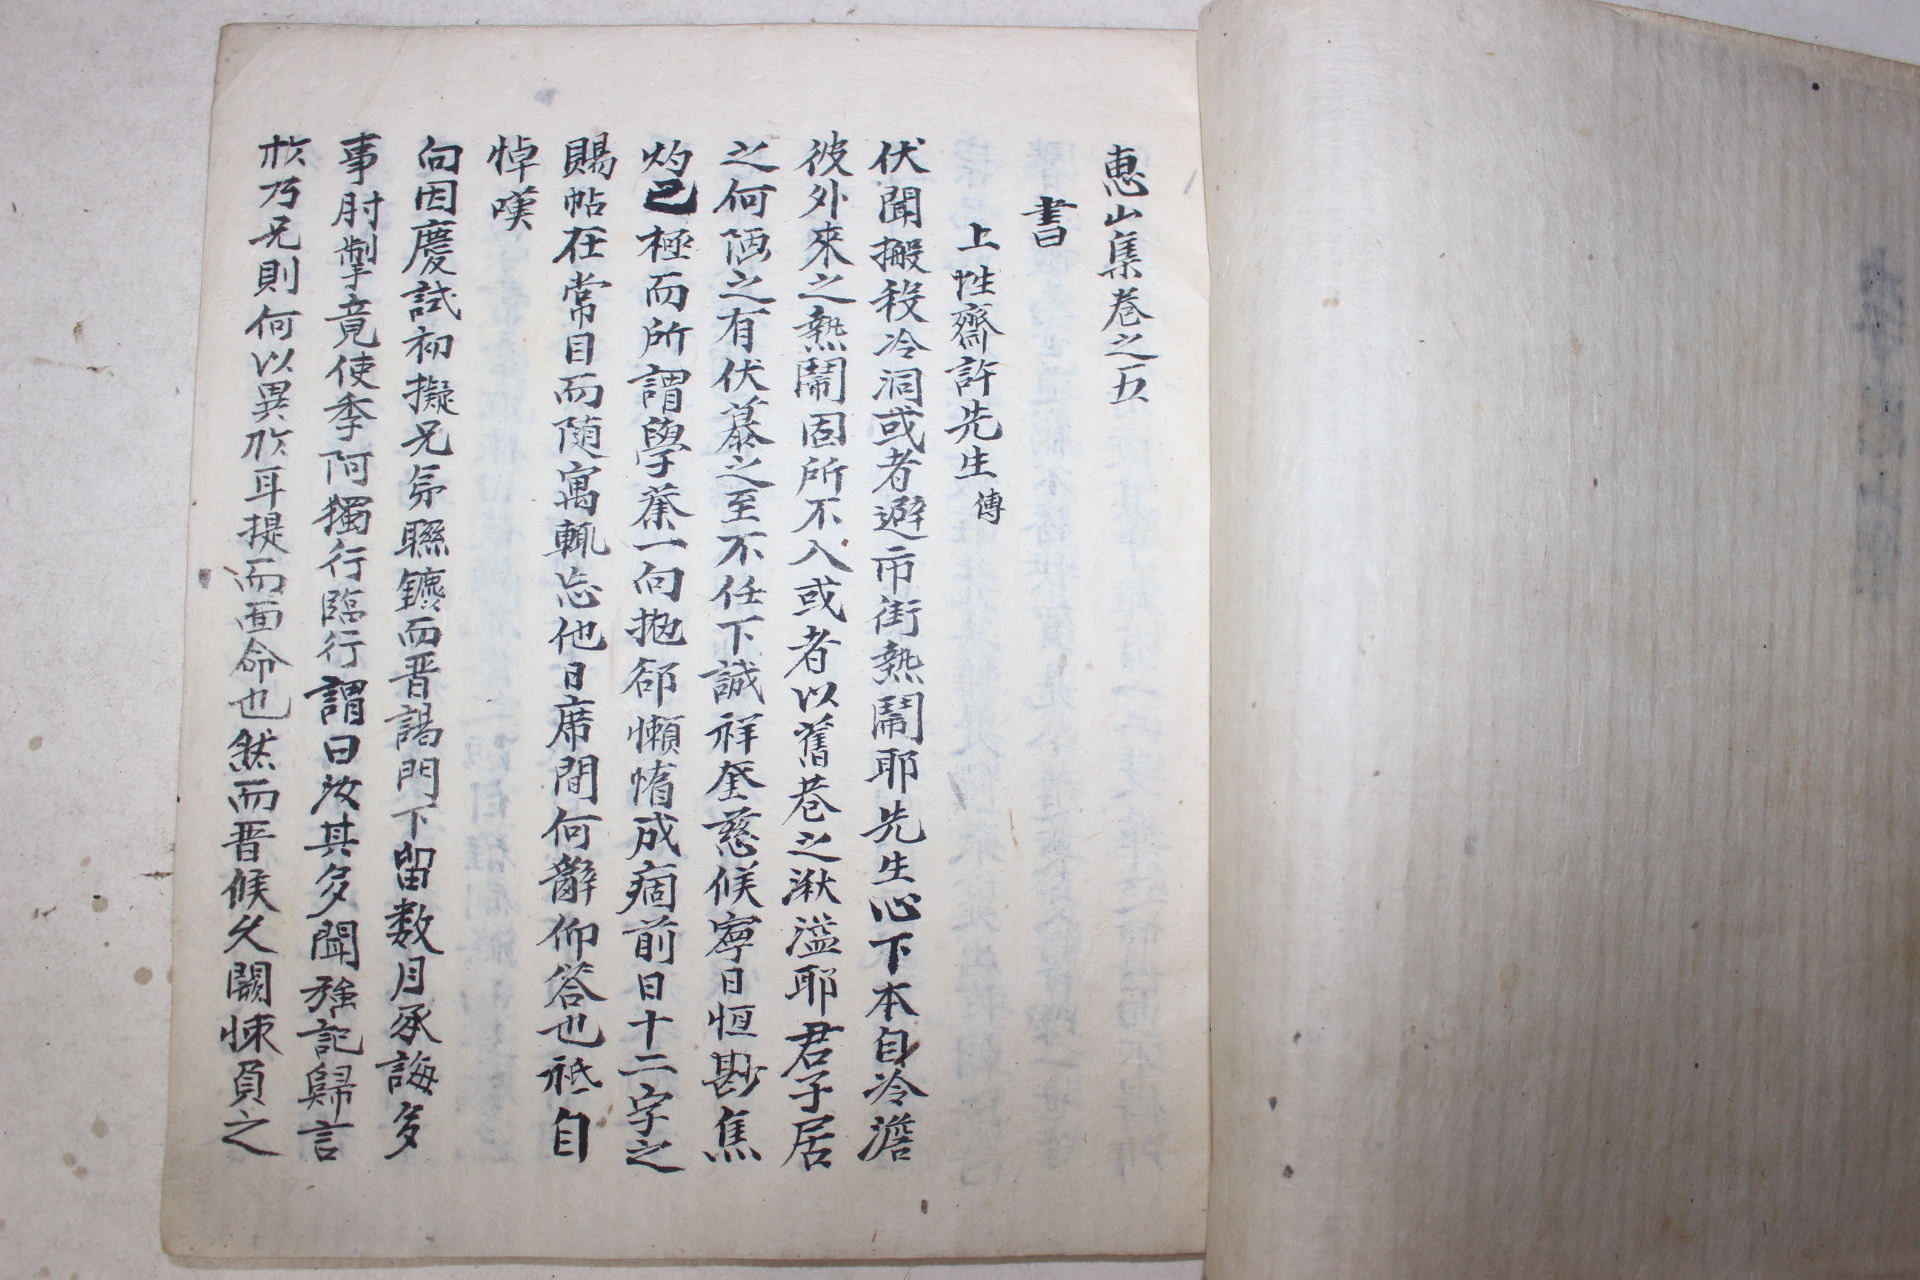 惠山集卷之五
書
上性齋許先生 傳
伏聞搬移冷洞或者避市街熱鬧耶先生心下本自冷澹
彼外來之熱鬧固所不入或者以舊巷之湫溢耶君子居
之何陋之有伏慕之至不任下誠祥奎慈候寧日恒尠焦
灼已極而所謂學業一向抛郤懶惰成痼前日十二字之
賜帖在常目而随寓輒忘他日席間何辭仰答也祗自
悼嘆
向因慶試初擬兄弟聯鑣而晋謁門下留数月承誨多
事肘掣竟使季阿獨行臨行謂曰汝其多聞强記歸言
於乃兄則何以異於耳提而面命也然而晋候久闕悚負之